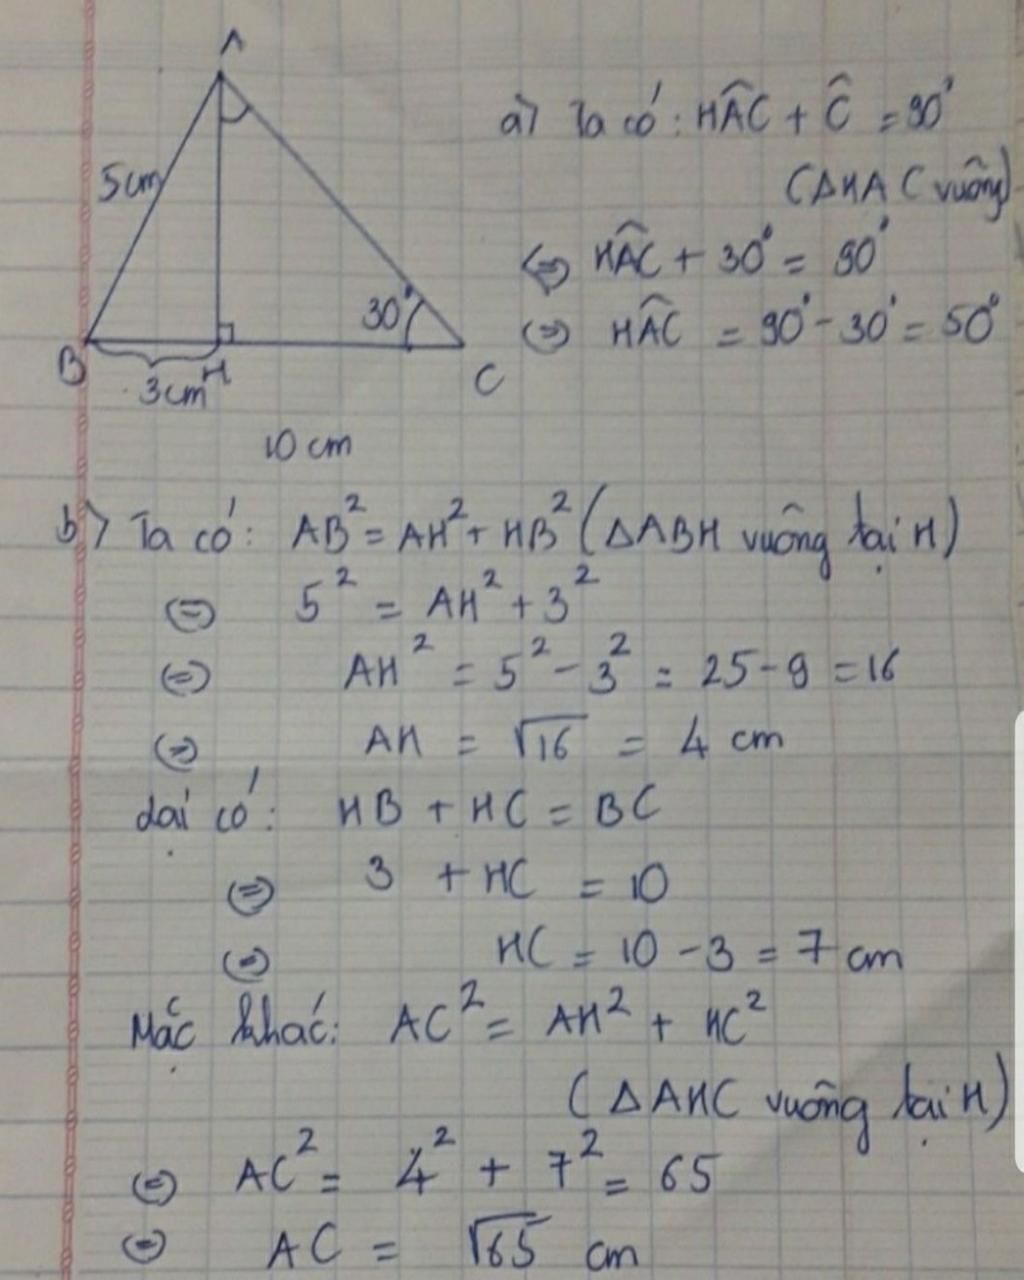 A
5cm
30°
B
H
C
3cm
10 cm
a) Ta có: HÂC + Ĉ = 90°
(ΔHAC vuông)
⇔ HÂC + 30° = 90°
⇔ HÂC = 90° - 30° = 50°
b) Ta có: AB² = AH² + HB² (ΔABH vuông tại H)
⇔ 5² = AH² + 3²
⇔ AH² = 5² - 3² = 25 - 9 = 16
⇔ AH = √16 = 4 cm
lại có: HB + HC = BC
⇔ 3 + HC = 10
⇔ HC = 10 - 3 = 7 cm
Mặc khác: AC² = AH² + HC²
(ΔAHC vuông tại H)
⇔ AC² = 4² + 7² = 65
⇔ AC = √65 cm